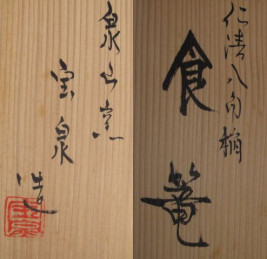 仁清八角桶
食篭
泉山窯
宝泉
造